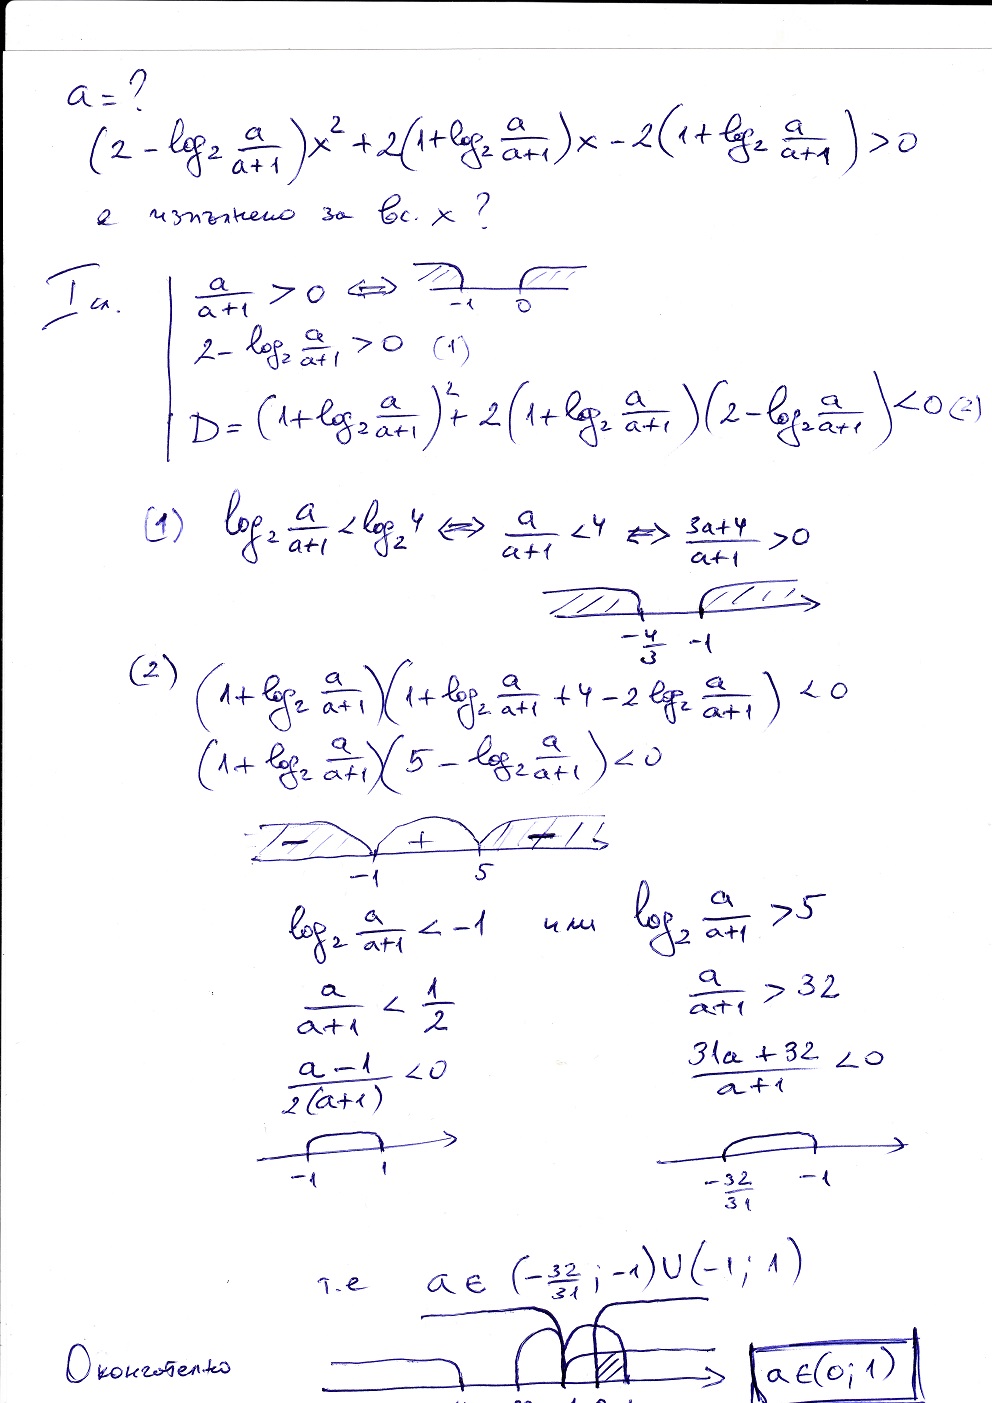 a = ?
(2 - log₂ a/(a+1))x² + 2(1 + log₂ a/(a+1))x - 2(1 + log₂ a/(a+1)) > 0
е изпълнено за вс. x ?
I сл.
a/(a+1) > 0 ⇔ -1 0
2 - log₂ a/(a+1) > 0 (1)
D = (1 + log₂ a/(a+1))² + 2(1 + log₂ a/(a+1))(2 - log₂ a/(a+1)) < 0 (2)
(1) log₂ a/(a+1) < log₂ 4 ⇔ a/(a+1) < 4 ⇔ (3a+4)/(a+1) > 0
-4/3 -1
(2) (1 + log₂ a/(a+1))(1 + log₂ a/(a+1) + 4 - 2 log₂ a/(a+1)) < 0
(1 + log₂ a/(a+1))(5 - log₂ a/(a+1)) < 0
- + -
-1 5
log₂ a/(a+1) < -1 или log₂ a/(a+1) > 5
a/(a+1) < 1/2 a/(a+1) > 32
(a-1)/(2(a+1)) < 0 (31a+32)/(a+1) < 0
-1 1 -32/31 -1
т.е a ∈ (-32/31 ; -1) ∪ (-1 ; 1)
Окончателно a ∈ (0 ; 1)